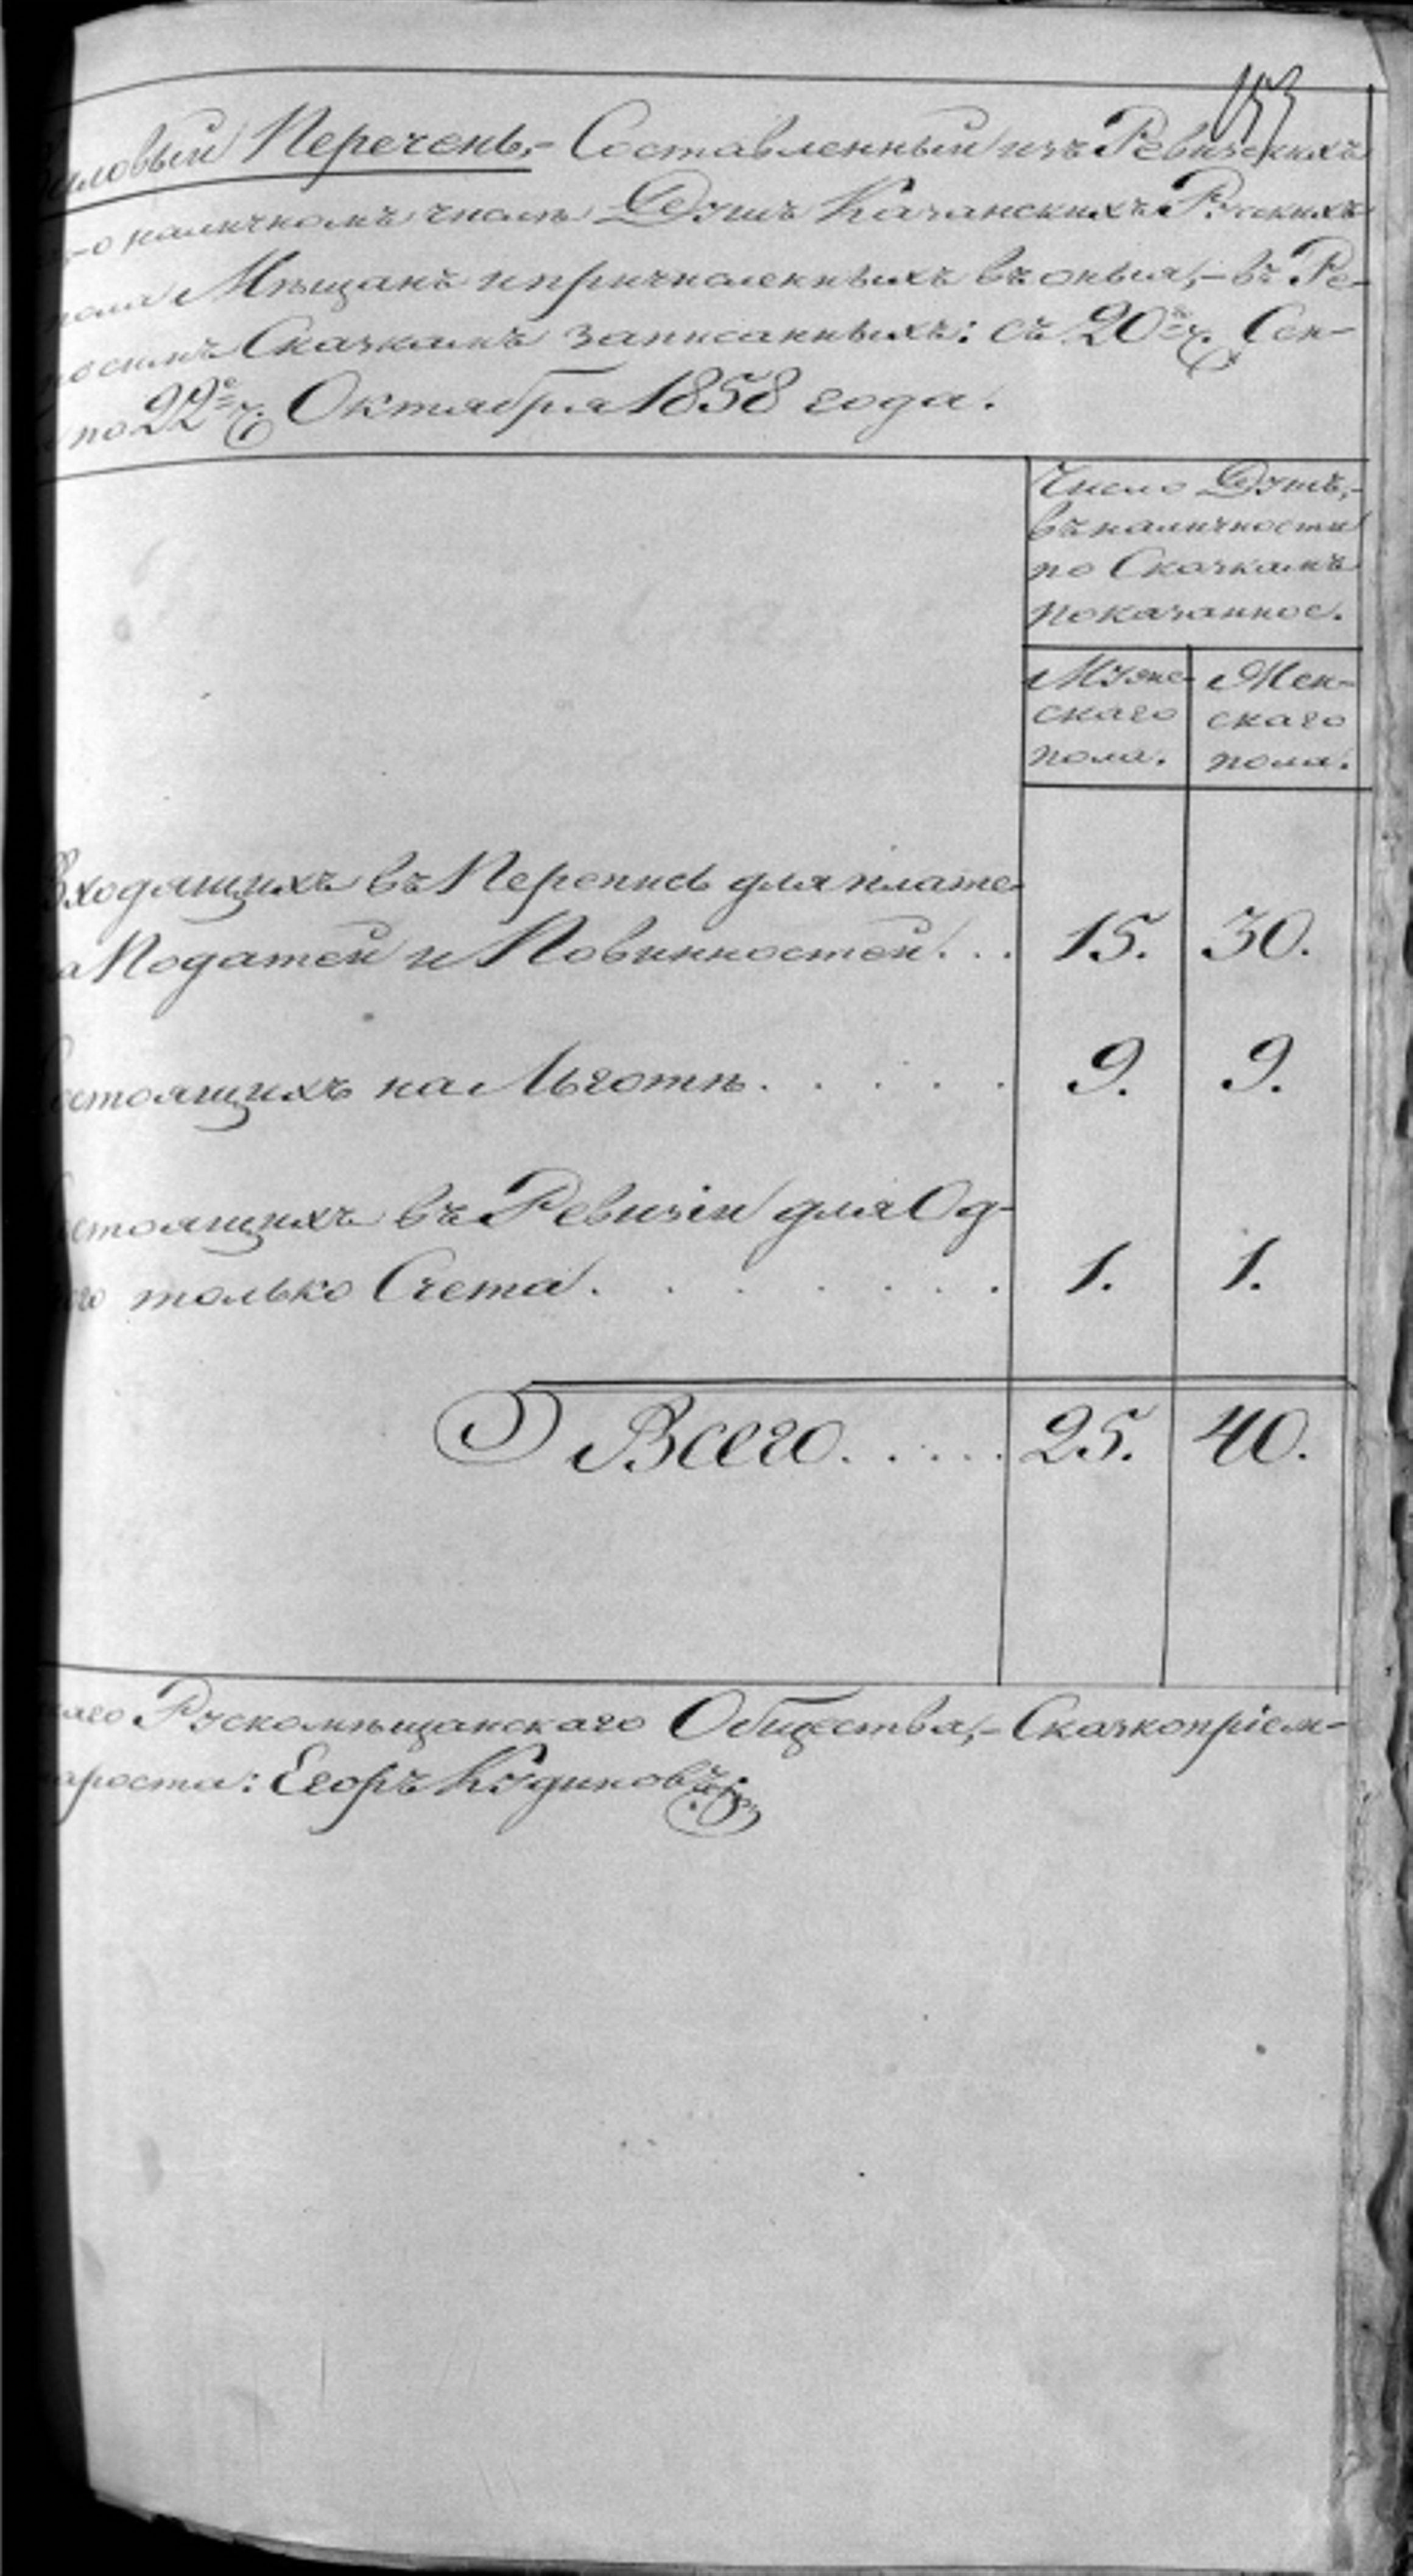 153
словый Перечень,- Составленный изъ Ревизскихъ
-о наличномъ числѣ Душъ Казанскихъ Рускихъ
пола Мѣщанъ и причисленныхъ въ оныя,- въ Ре-
Сказкамъ записанныхъ: съ 20го ч. Сен-
по 22е ч. Октября 1858 года.
Число Душъ,-
въ наличности
по Сказкамъ
показанное.
Муже- Жен-
скаго скаго
пола. пола.
Входящихъ въ Перепись для плате-
а Податей и Повинностей. . . 15. 30.
остоящихъ на Льготѣ. . . . . . 9. 9.
стоящихъ въ Ревизіи для Од-
го только Счета. . . . . . . . 1. 1.
Всего. . . . . 25. 40.
наго Рускомѣщанскаго Общества,- Сказкопріем-
ароста: Егоръ Кудиновъ